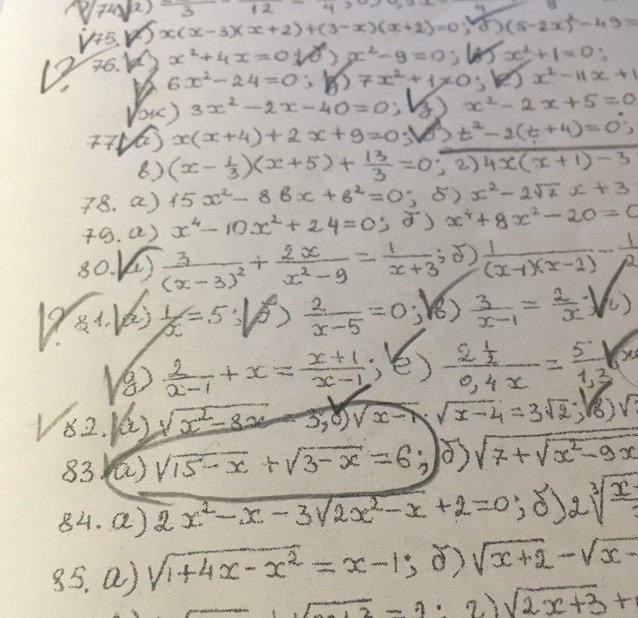 75. а) x(x-3)(x+2)+(3-x)(x+2)=0; б) (5-2x)²-49=
76. а) x²+4x=0; б) x²-9=0; в) x²+1=0;
г) 6x²-24=0; д) 7x²+1=0; е) x²-11x+1
ж) 3x²-2x-40=0; з) x²-2x+5=0
77. а) x(x+4)+2x+9=0; б) t²-2(t+4)=0;
в) (x-1/3)(x+5)+13/3=0; г) 4x(x+1)-3
78. а) 15x²-8вx+в²=0; б) x²-2√7 x+3
79. а) x⁴-10x²+24=0; б) x⁴+8x²-20=0
80. а) 3/(x-3)²+2x/(x²-9)=1/(x+3); б) 1/((x-1)(x-2))-1/2
81. а) 1/x=5; б) 2/(x-5)=0; в) 3/(x-1)=2/x; г)
д) 2/(x-1)+x=(x+1)/(x-1); е) 2 1/2/0,4x=5/1,2; ж
82. а) √(x²-8x)=3; б) √(x-1)·√(x-4)=3√2; в) √
83. а) √(15-x)+√(3-x)=6; б) √(7+√(x²-9x
84. а) 2x²-x-3√(2x²-x)+2=0; б) 2∛(x
85. а) √(1+4x-x²)=x-1; б) √(x+2)-√(x-
=2; г) √(2x+3)+